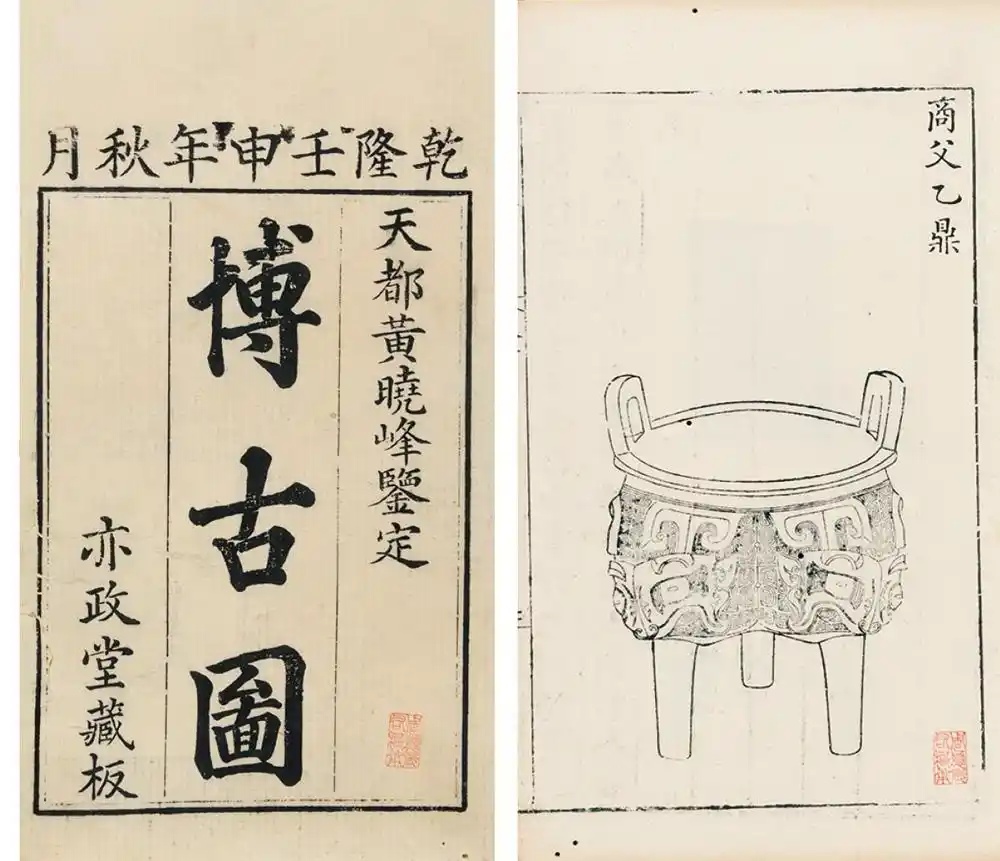 乾隆壬申年秋月
天都黃曉峰鑒定
博古圖
亦政堂藏板
商父乙鼎